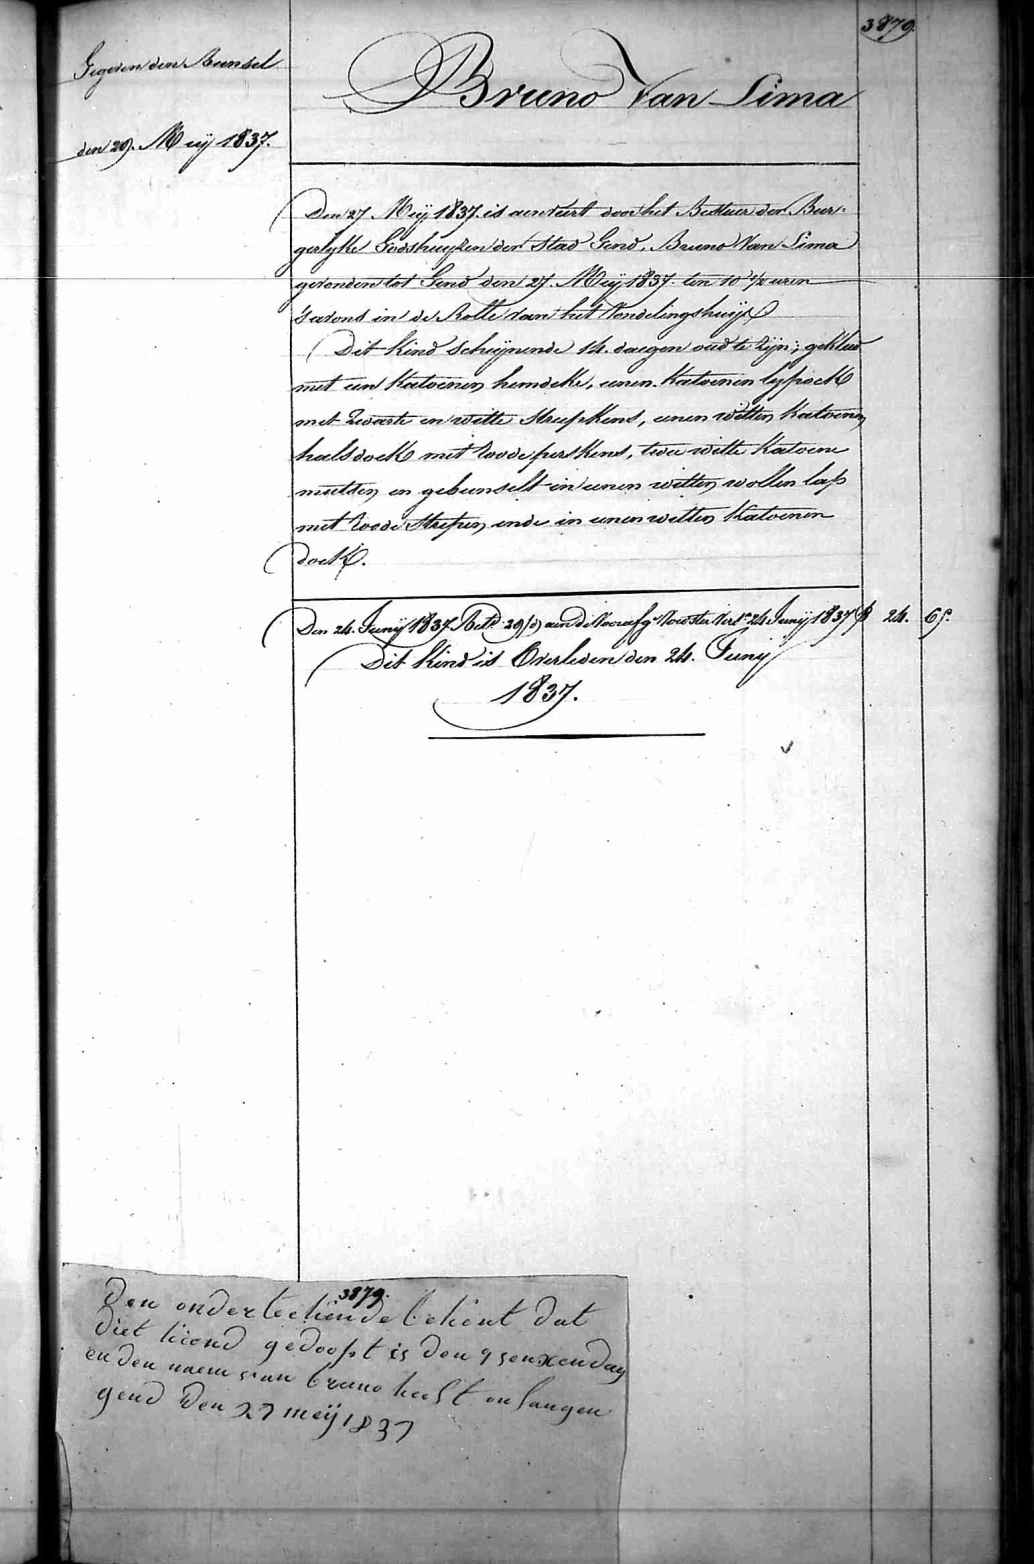 3879.
Gegeven den Bunsel
den 29. Meij 1837.
Bruno Van Lima
Den 27 Meij 1837. is aenveert door het Bestuer der Bur-
gerlyke Godshuyzen der Stad Gend, Bruno Van Lima
gevonden tot Gend den 27. Meij 1837. ten 10 1/2 uren
s'avons in de Rolle van het Vondelingshuijs
Dit kind schijnende 14. daegen oud te zijn; gekleed
met een katoenen hemdeke, eenen katoenen lyfrock
met zwarte en witte streepkens, eenen witten katoenen
halsdoek met roode perskens, twee witte katoene
mutsen en gebunselt in eenen witten wollen lap
met roode strepen, ende in eenen witten katoenen
doek.
Den 24. Junij 1837. Bet. 29 aen de Voedster Vert. 24 Junij 1837 24. 65.
Dit kind is Overleden den 24. Junij
1837.
3879.
Den onderteekende bekent dat
diet kiend gedoopt is den 9
en den naem van bruno heeft onfangen
gend Den 27 meij 1837